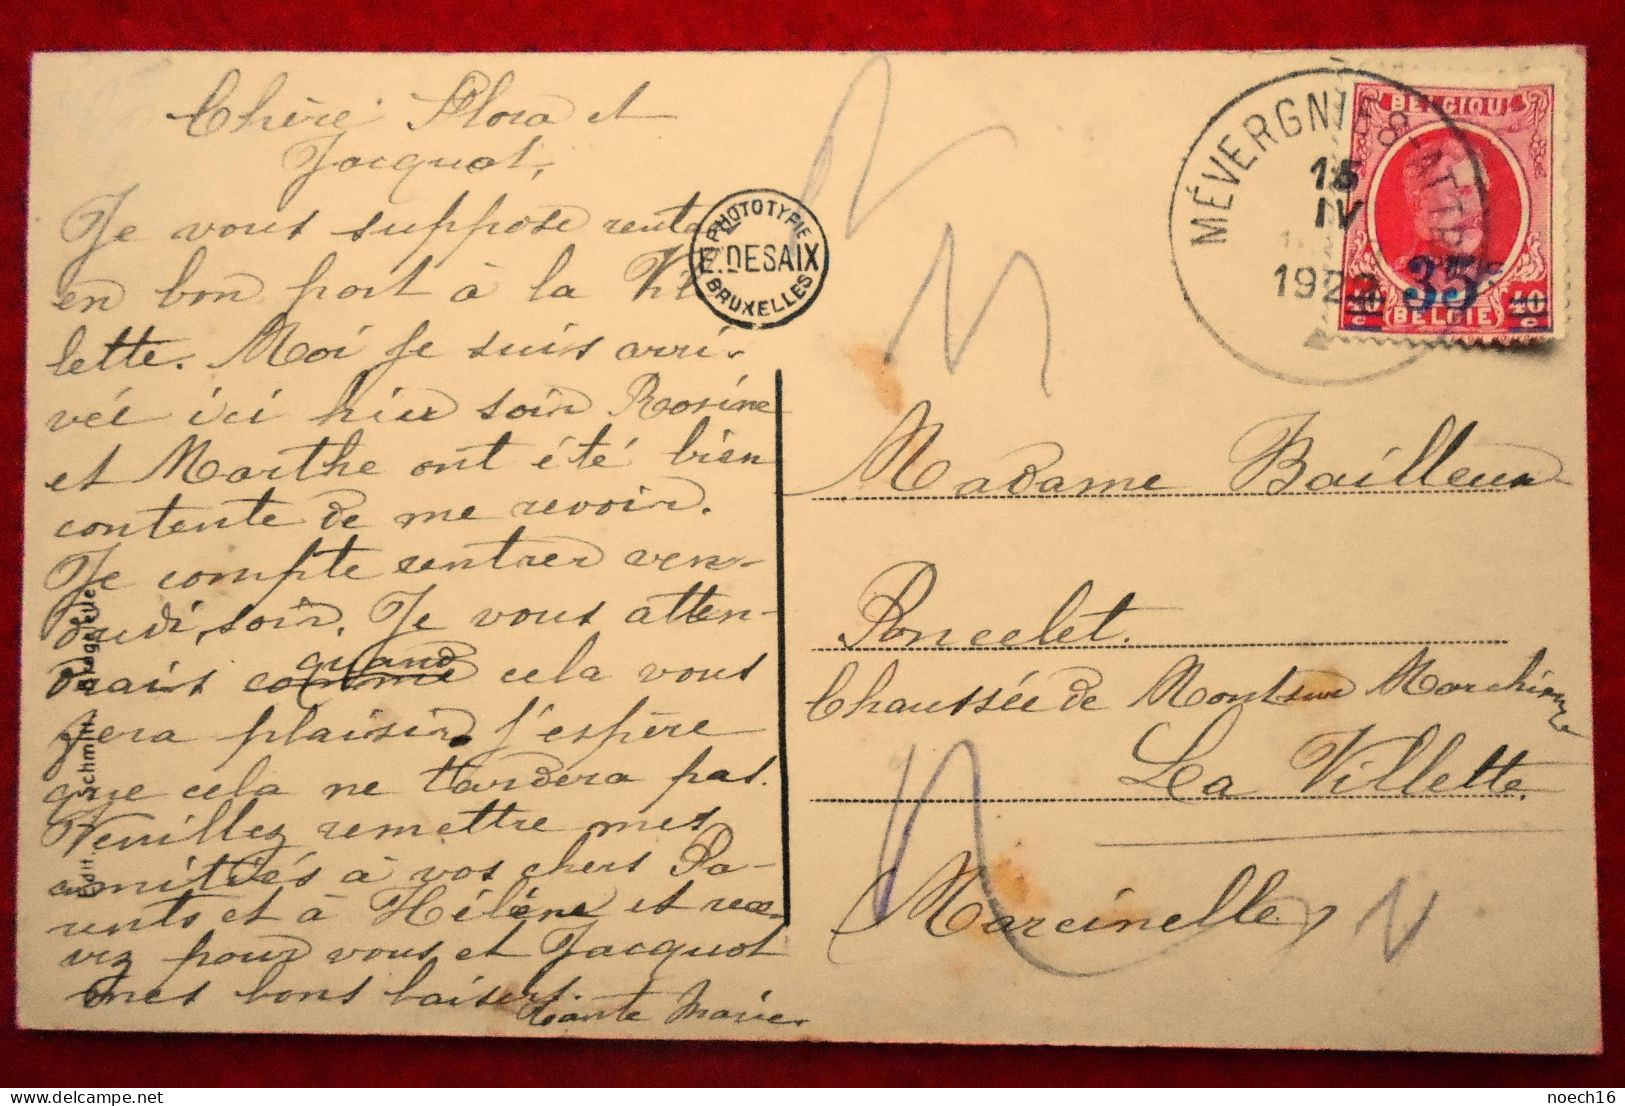 Chère Flora et
Jacquot,
Je vous suppose rentr
en bon port à la Vil
lette. Moi je suis arri-
vée ici hier soir Rosine
et Marthe ont été bien
contente de me revoir.
Je compte rentrer ven-
dredi, soir. Je vous atten-
drais comme quand cela vous
fera plaisir j'espère
que cela ne tardera pas.
Veuillez remettre mes
amitiés à vos chers Pa-
rents et à Hélène et rece-
vez pour vous et Jacquot
mes bons baisers.
Tante Marie
PHOTOTYPIE
E. DESAIX
BRUXELLES
Edit. Schmitt
MÉVERGNIES
15
IV
192
BELGIQUE
35c
40 c
40 c
BELGIE
Madame Bailleux
Poncelet.
Chaussée de Mont sur Marchienne
La Villette
Marcinelle
noech16